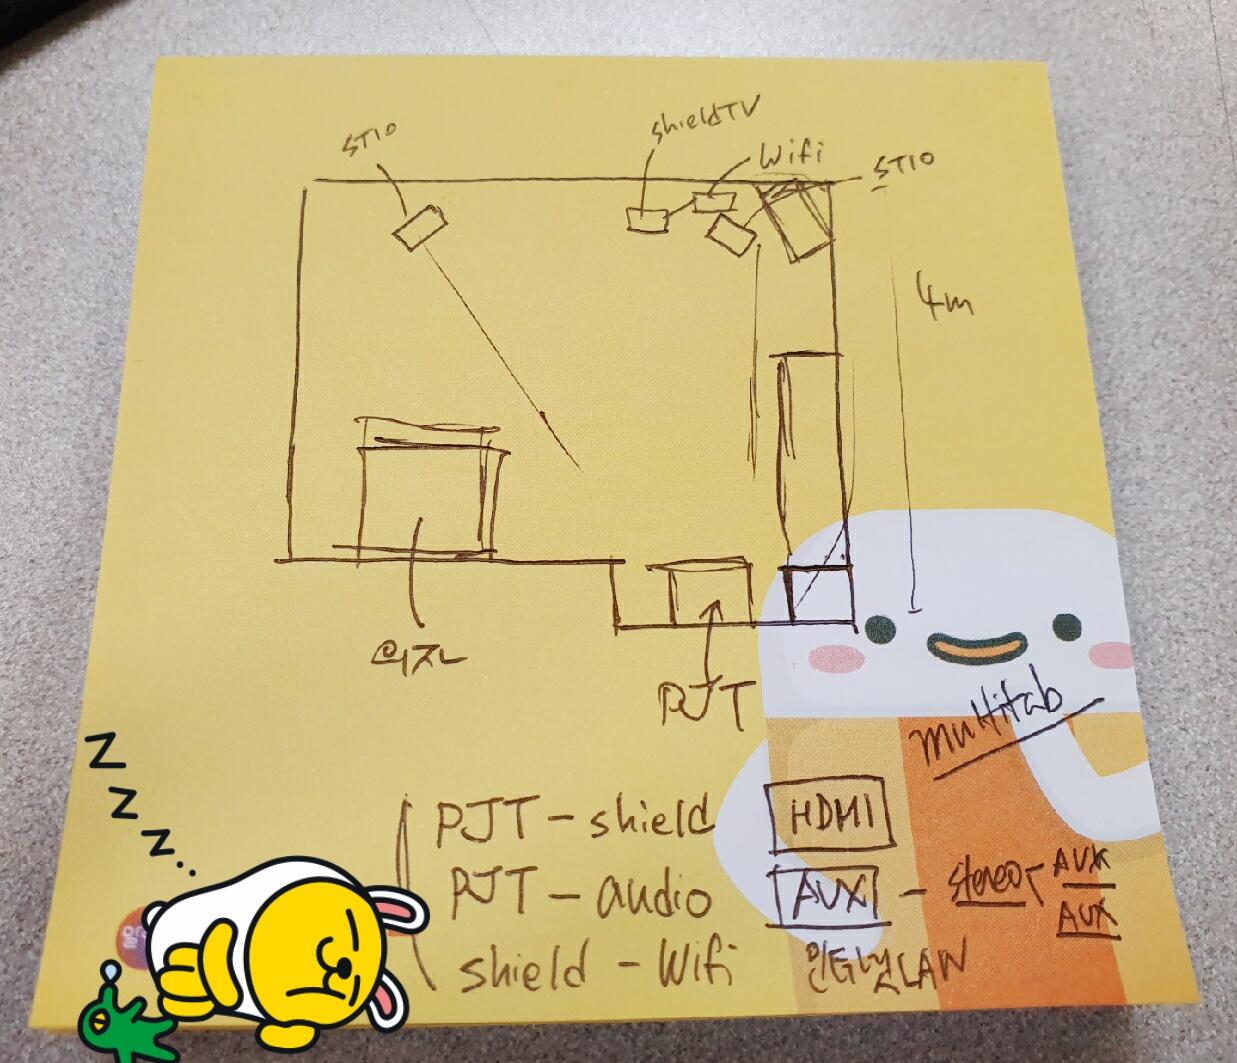 shieldTV
ST10
Wifi
ST10
4m
의자
PJT
multitab
PJT - shield HDMI
PJT - audio AUX - stereo AUX
AUX
shield - Wifi LAN
z
z
z..